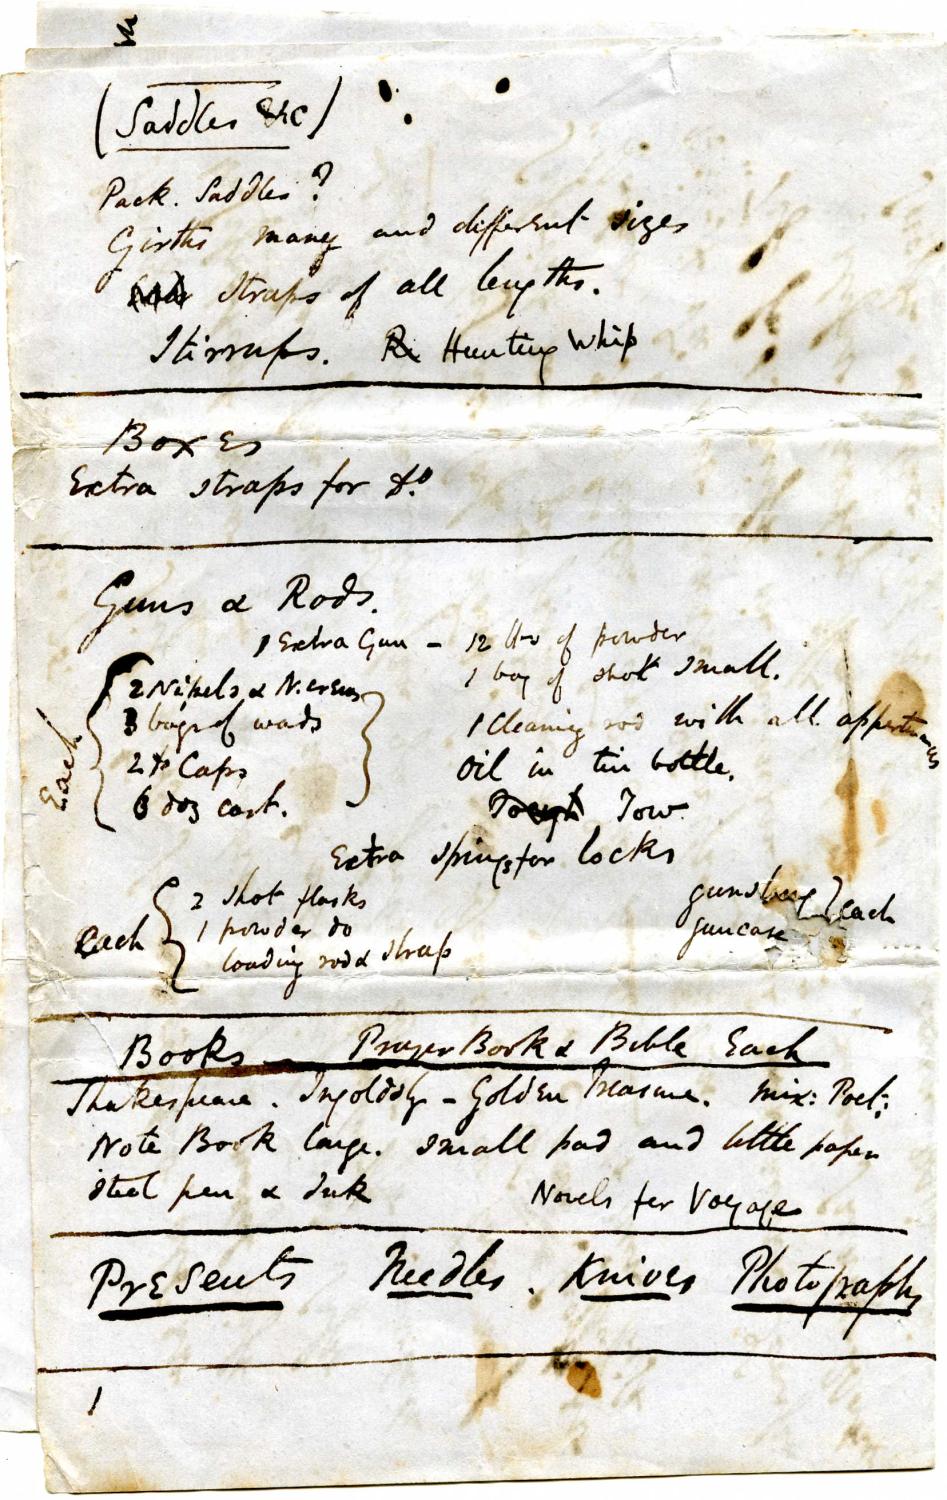 (Saddles &c)
Pack. Saddles?
Girths many and different sizes
Straps of all lengths.
Stirrups. Hunting Whip
Boxes
Extra straps for do
Guns & Rods.
1 Extra Gun - 12 lbs of powder
1 bag of shot small.
Each
2 Nipels & N.
3 bags of wads
2 Caps
6 doz cart.
1 Cleaning rod with all appertinances
Oil in tin bottle.
Tow
Extra springs for locks
each
2 shot flasks
1 powder do
loading rod & straps
guncase
each
Books - Prayer Book & Bible Each
Shakespeare. Ingoldsby - Golden Treasure. Mix: Poet:
Note Book large. small pad and little paper
steel pen & Ink Novels for Voyage
Presents Needles. Knives Photographs
1